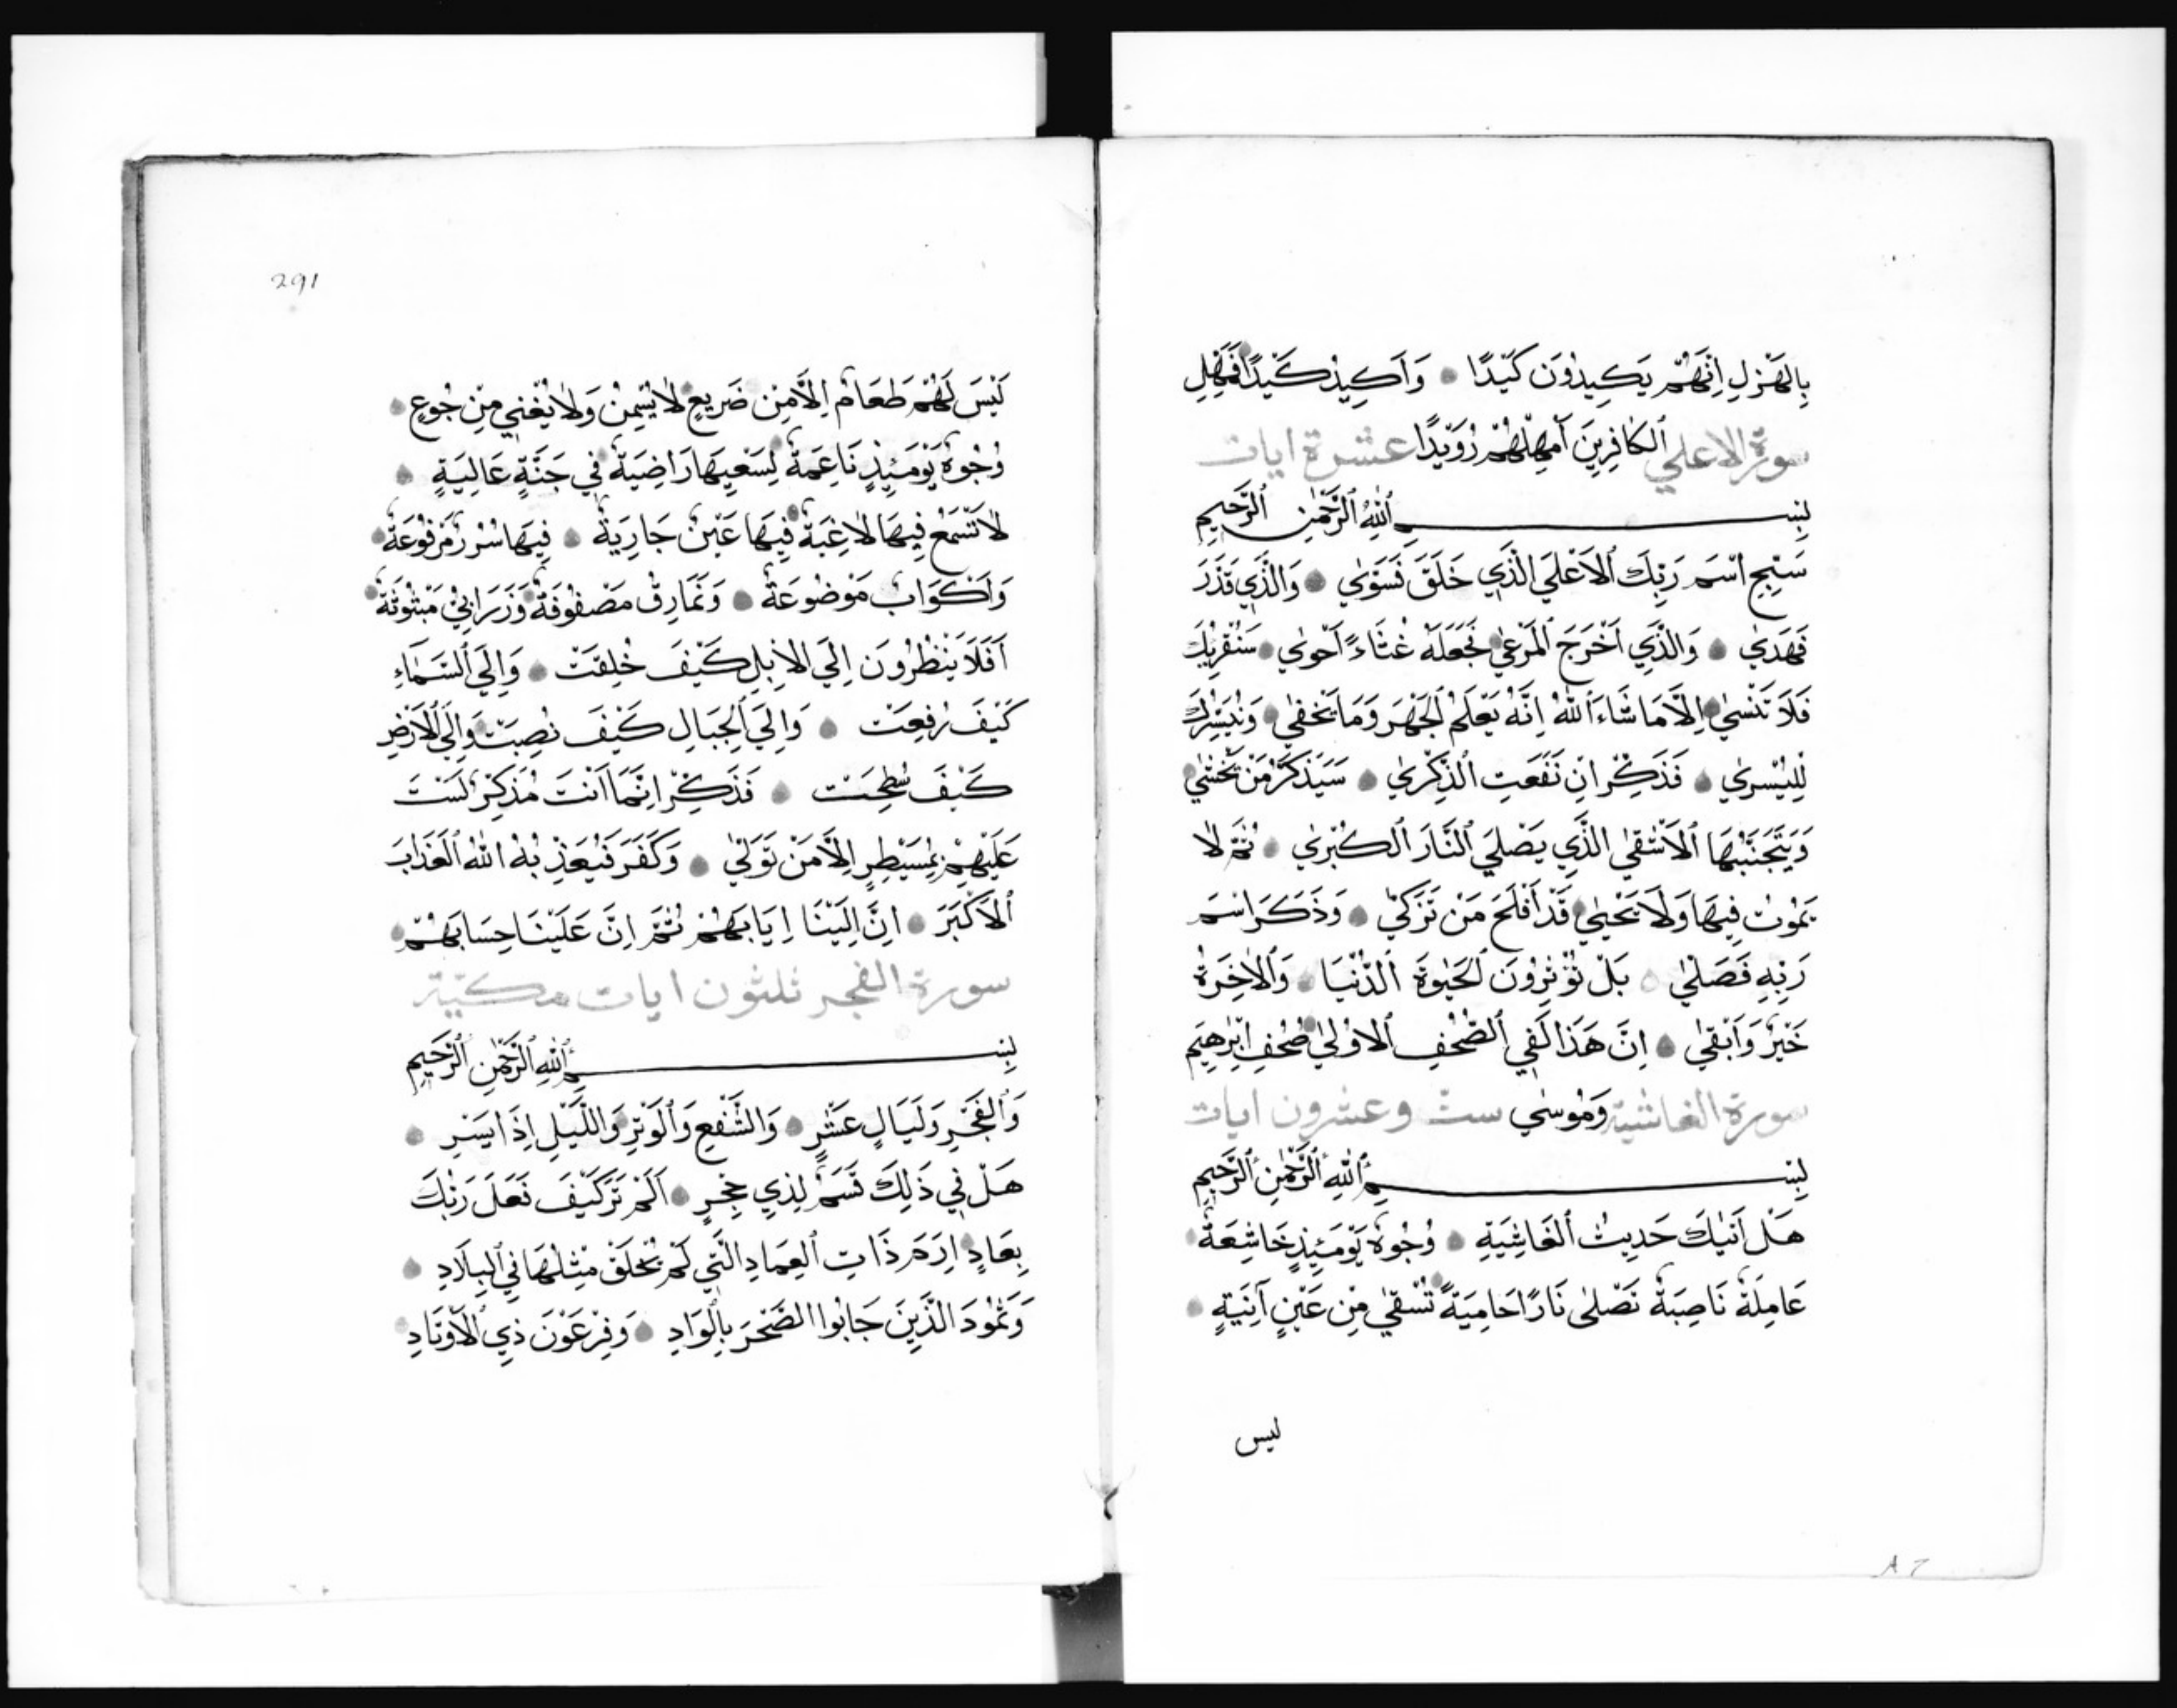 بِالْهَزْلِ اِنَّهُمْ يَكِيدُونَ كَيْدًا وَاَكِيدُ كَيْدًا فَمَهِّلِ
سورة الاعلي اَلْكَافِرِينَ اَمْهِلْهُمْ رُوَيْدًا عشرة ايات
بِسْمِ اللّٰهِ الرَّحْمٰنِ الرَّحِيمِ
سَبِّحِ اسْمَ رَبِّكَ الْاَعْلَي الَّذِي خَلَقَ فَسَوّٰي وَالَّذِي قَدَّرَ
فَهَدٰي وَالَّذِي اَخْرَجَ الْمَرْعٰي فَجَعَلَهُ غُثَاءً اَحْوٰي سَنُقْرِئُكَ
فَلَا تَنْسٰي اِلَّا مَا شَاءَ اللّٰهُ اِنَّهُ يَعْلَمُ الْجَهْرَ وَمَا يَخْفٰي وَنُيَسِّرُكَ
لِلْيُسْرٰي فَذَكِّرْ اِنْ نَفَعَتِ الذِّكْرٰي سَيَذَّكَّرُ مَنْ يَخْشٰي
وَيَتَجَنَّبُهَا الْاَشْقٰي الَّذِي يَصْلَي النَّارَ الْكُبْرٰي ثُمَّ لَا
يَمُوتُ فِيهَا وَلَا يَحْيٰي قَدْ اَفْلَحَ مَنْ تَزَكّٰي وَذَكَرَ اسْمَ
رَبِّهِ فَصَلّٰي بَلْ تُؤْثِرُونَ الْحَيٰوةَ الدُّنْيَا وَالْاٰخِرَةُ
خَيْرٌ وَاَبْقٰي اِنَّ هَذَا لَفِي الصُّحُفِ الْاُولٰي صُحُفِ اِبْرٰهِيمَ
سورة الغاشية وَمُوسٰي ست وعشرون ايات
بِسْمِ اللّٰهِ الرَّحْمٰنِ الرَّحِيمِ
هَلْ اَتٰيكَ حَدِيثُ الْغَاشِيَةِ وُجُوهٌ يَوْمَئِذٍ خَاشِعَةٌ
عَامِلَةٌ نَاصِبَةٌ تَصْلٰى نَارًا حَامِيَةً تُسْقٰي مِنْ عَيْنٍ آنِيَةٍ
ليس
291
لَيْسَ لَهُمْ طَعَامٌ اِلَّا مِنْ ضَرِيعٍ لَا يُسْمِنُ وَلَا يُغْنِي مِنْ جُوعٍ
وُجُوهٌ يَوْمَئِذٍ نَاعِمَةٌ لِسَعْيِهَا رَاضِيَةٌ فِي جَنَّةٍ عَالِيَةٍ
لَا تَسْمَعُ فِيهَا لَاغِيَةً فِيهَا عَيْنٌ جَارِيَةٌ فِيهَا سُرُرٌ مَرْفُوعَةٌ
وَاَكْوَابٌ مَوْضُوعَةٌ وَنَمَارِقُ مَصْفُوفَةٌ وَزَرَابِيُّ مَبْثُوثَةٌ
اَفَلَا يَنْظُرُونَ اِلَي الْاِبِلِ كَيْفَ خُلِقَتْ وَاِلَي السَّمَاءِ
كَيْفَ رُفِعَتْ وَاِلَي الْجِبَالِ كَيْفَ نُصِبَتْ وَاِلَي الْاَرْضِ
كَيْفَ سُطِحَتْ فَذَكِّرْ اِنَّمَا اَنْتَ مُذَكِّرٌ لَسْتَ
عَلَيْهِمْ بِمُسَيْطِرٍ اِلَّا مَنْ تَوَلّٰي وَكَفَرَ فَيُعَذِّبُهُ اللّٰهُ الْعَذَابَ
الْاَكْبَرَ اِنَّ اِلَيْنَا اِيَابَهُمْ ثُمَّ اِنَّ عَلَيْنَا حِسَابَهُمْ
سورة الفجر ثلثون ايات مكيّة
بِسْمِ اللّٰهِ الرَّحْمٰنِ الرَّحِيمِ
وَالْفَجْرِ وَلَيَالٍ عَشْرٍ وَالشَّفْعِ وَالْوَتْرِ وَاللَّيْلِ اِذَا يَسْرِ
هَلْ فِي ذَلِكَ قَسَمٌ لِذِي حِجْرٍ اَلَمْ تَرَ كَيْفَ فَعَلَ رَبُّكَ
بِعَادٍ اِرَمَ ذَاتِ الْعِمَادِ الَّتِي لَمْ يُخْلَقْ مِثْلُهَا فِي الْبِلَادِ
وَثَمُودَ الَّذِينَ جَابُوا الصَّخْرَ بِالْوَادِ وَفِرْعَوْنَ ذِي الْاَوْتَادِ